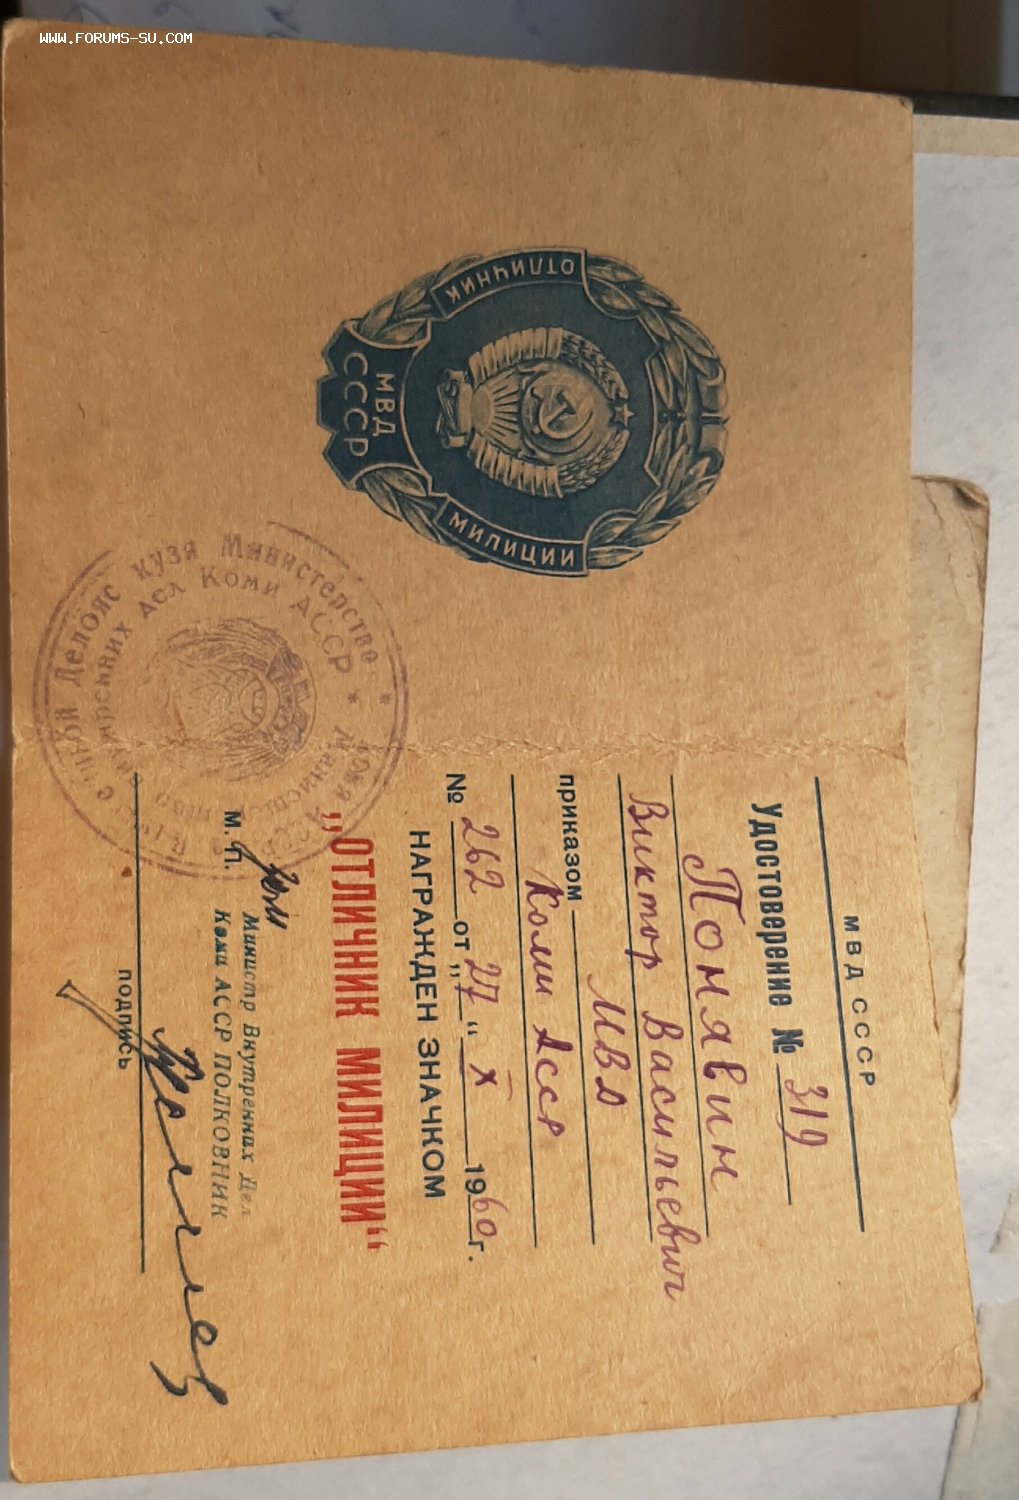 WWW.FORUMS-SU.COM
ОТЛИЧНИК
МИЛИЦИИ
МВД
СССР
Министерство
Внутренних дел Коми АССР
Делöяс кузя
МВД СССР
Удостоверение № 319
Понявин
Виктор Васильевич
приказом МВД
Коми Асср
№ 262 от „27“ X 1960 г.
НАГРАЖДЕН ЗНАЧКОМ
„ОТЛИЧНИК МИЛИЦИИ“
Министр Внутренних Дел
М. П. Коми АССР ПОЛКОВНИК
подпись